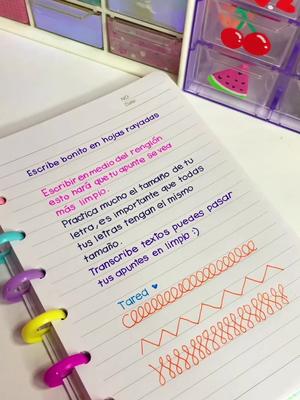 NO.
Date
Escribe bonito en hojas rayadas
Escribir en medio del renglón
esto hará que tu apunte se vea
más limpio.
Practica mucho el tamaño de tu
letra, es importante que todas
tus letras tengan el mismo
tamaño.
Transcribe textos puedes pasar
tus apuntes en limpio :)
Tarea ♥